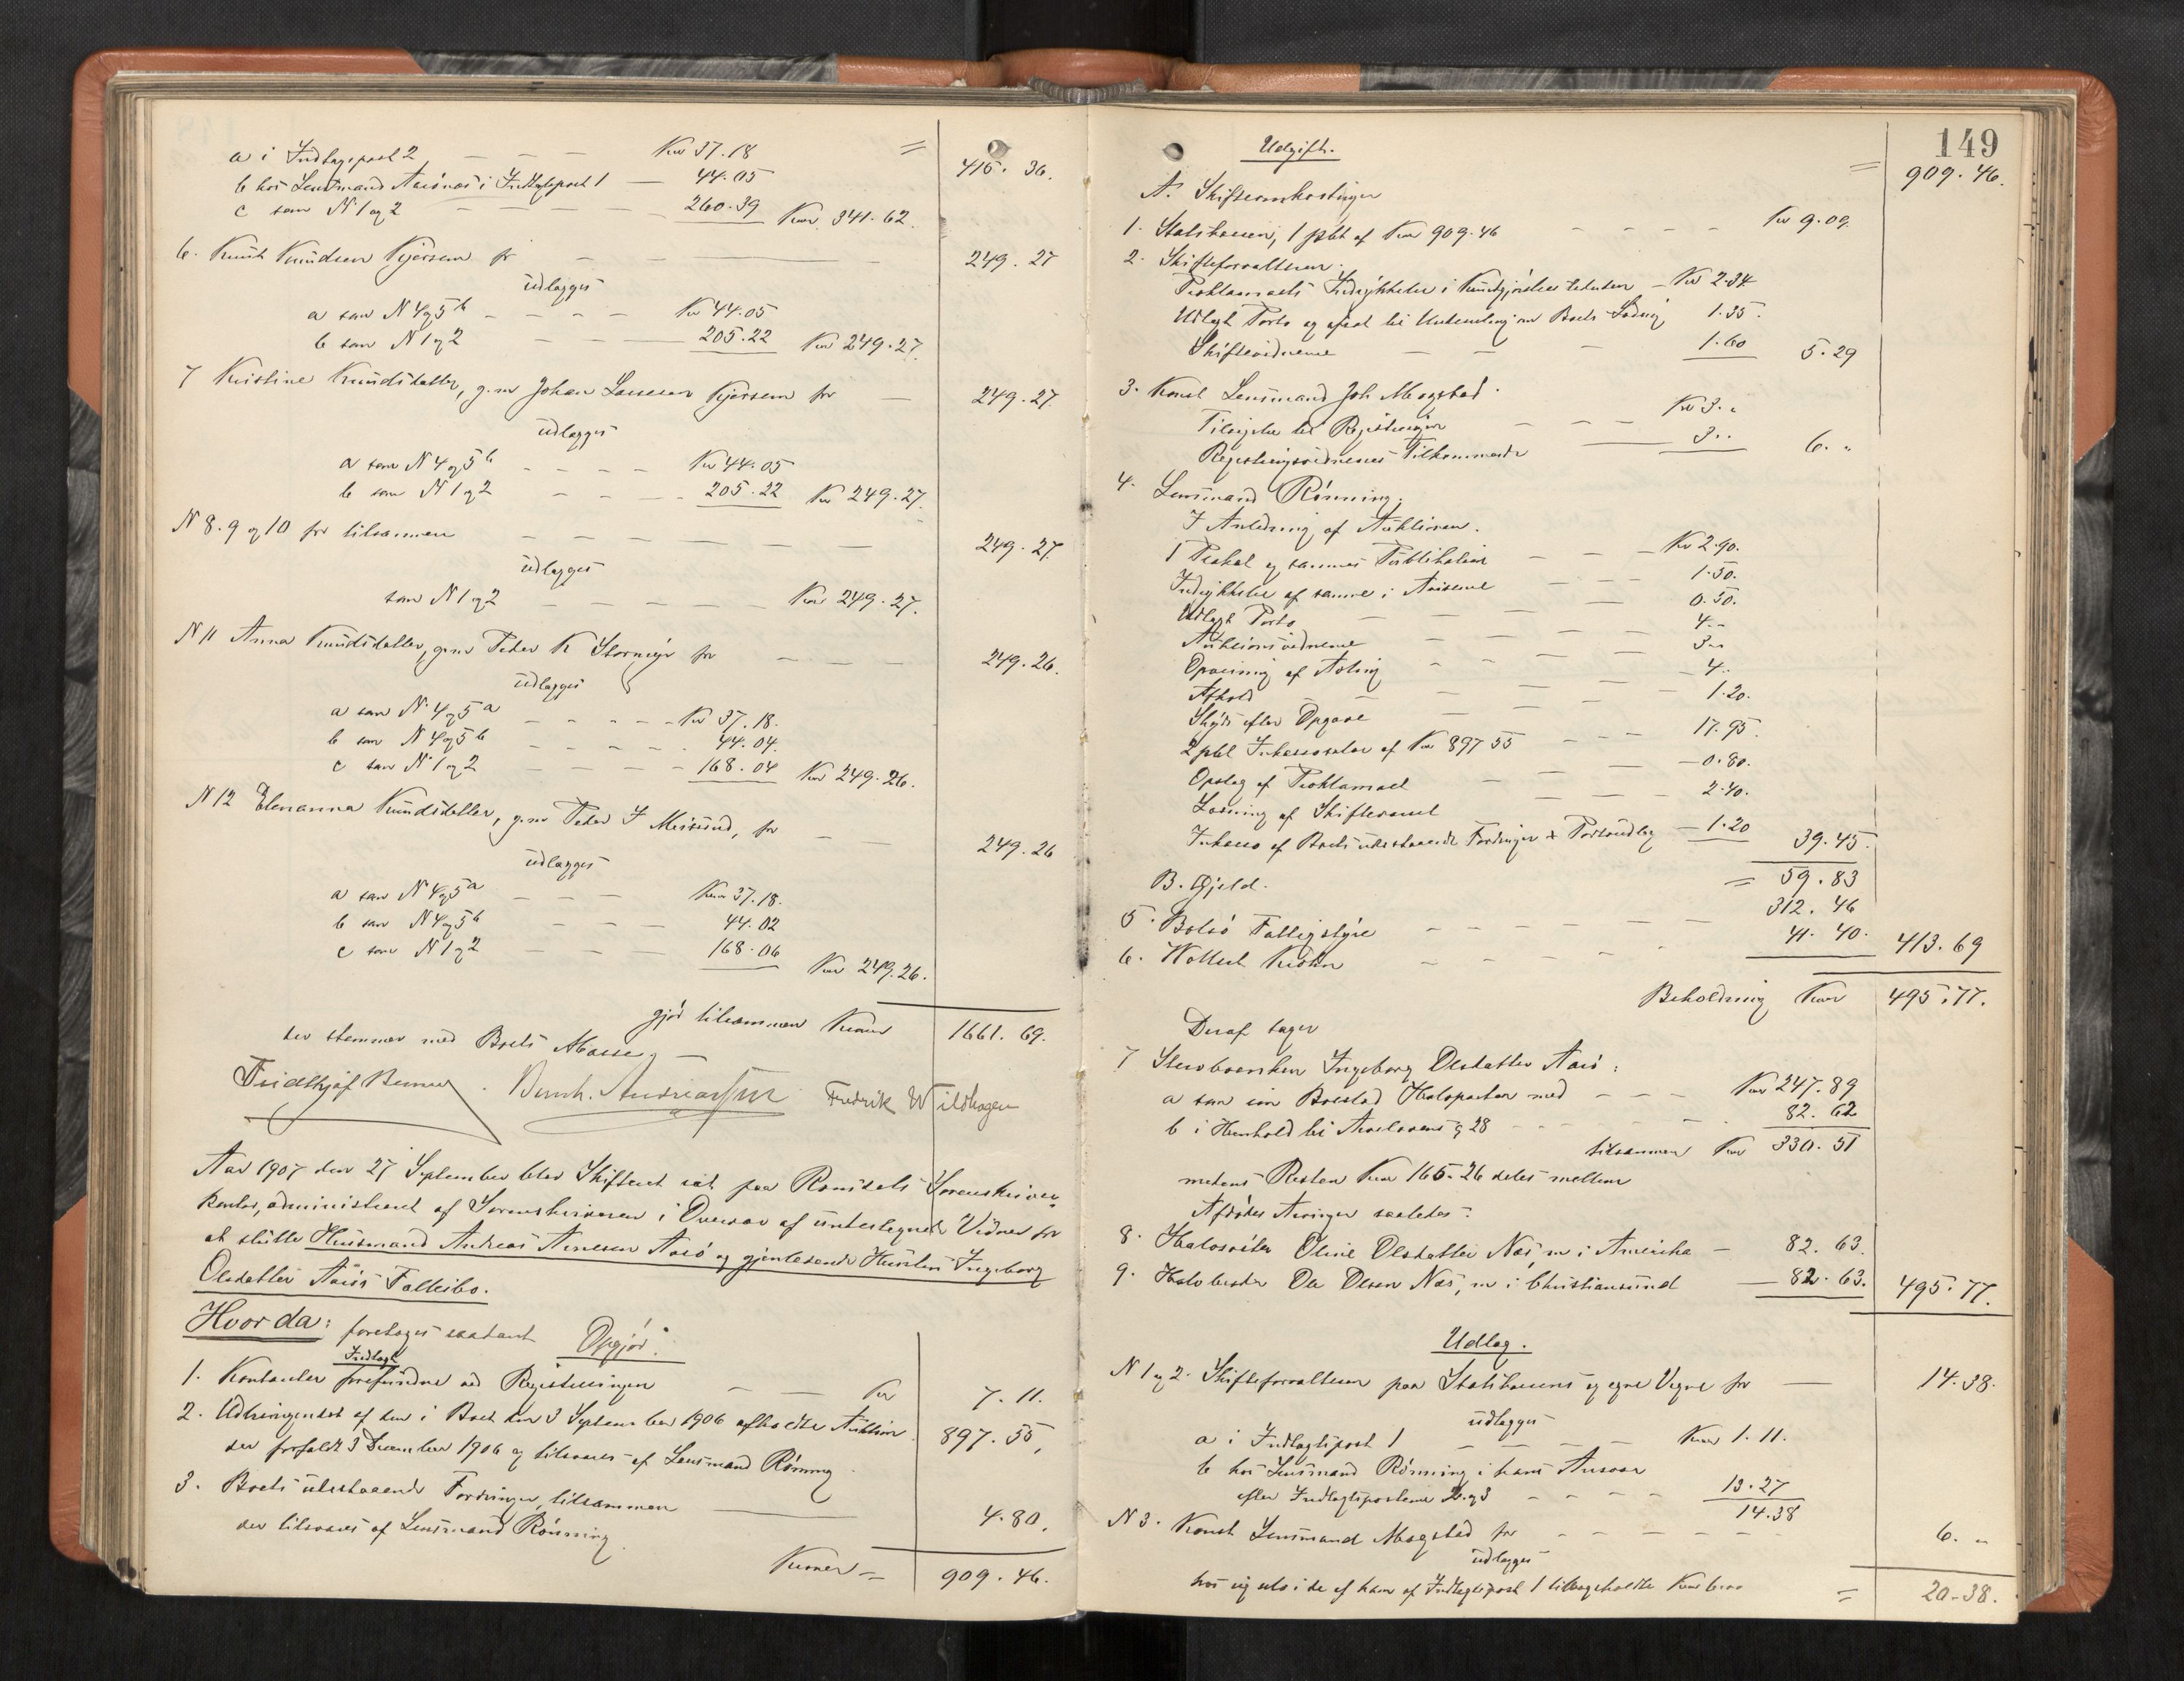 a i Indtægtspost 2 — — — Kr 37.18 = 415.36.
b hos Lensmand Aarønæs i Indtægtspost 1 — 44.05
c som N 1 og 2 — — — — 260.39 Kroner 341.62.
6. Knut Knudsen Kjersem for — — — 249.27
udlægges
a som N 4 og 5 b — — — — Kr 44.05
b som N 1 og 2 — — — 205.22 Kr 249.27.
7 Kristine Knudsdatter, g.m. Johan Larsen Kjersem for — 249.27.
udlægges
a som N 4 og 5 b — — — — Kr 44.05
b som N 1 og 2 — — — 205.22 Kr 249.27.
N 8. 9 og 10 for tilsammen — — — — — — 249.27.
udlægges
som N 1 og 2 — — — — — Kr 249.27.
N 11 Anna Knudsdatter, g.m. Peder K Stormyr for — — — 249.26.
udlægges
a som N 4 og 5 a — — — — Kr 37.18.
b som N 4 og 5 b — — — — 44.04.
c som N 1 og 2 — — — — 168.04 Kr 249.26.
N 12 Elenanna Knudsdatter, g.m. Peder I Meisund, for — — 249.26
udlægges
a som N 4 og 5 a — — — Kroner 37.18.
b som N 4 og 5 b — — — 44.02
c som N 1 og 2 — — — 168.06
Kroner 249.26.
gjør tilsammen Kroner 1661.69.
der stemmer med Boets Masse. —
Fridthjof Berner. Bernh. Andreassen Fredrik Wildhagen
Aar 1907 den 27 September blev Skifteret sat paa Romsdals Sorenskriver=
kontor, administreret af Sorenskriveren i Overvær af undertegnede Vidner for
at slutte Husmand Andreas Arnesen Aarø og gjenlevende Hustru Ingeborg
Olsdatter Aarøs Fallesbo.
Hvor da: foretoges saadant Opgjør:
Indtægt
1. Kontanter forefundne ved Registreringen — — Kr 7.11.
2. Udbringendet af den i Boet den 3 September 1906 afholdte Auktion 897.55,
der forfaldt 3 December 1906 og tilsvares af Lensmand Rønning
3. Boets udestaaende Fordringer, tilsammen — 4.80.
der tilsvares af Lensmand Rønning.
Kroner = 909.46.
149
Udgift. = 909.46.
A. Skifteomkostninger
1. Statskassen, 1 pCt af Kroner 909.46 — — — — Kr 9.09.
2. Skifteforvalteren.
Proklamaets Indrykkelse i Kundgjørelsestidenden — Kr 2.34
Udlagt Porto og afsat til Underretning om Boets Slutning 1.35.
Skiftevidnerne — — — 1.60 5.29
3. Konst Lensmand Joh Magstad.
Tilsigelse til Registreringen — — — Kr 3. „
Registreringsvidnernes Tilkommende — 3. „ 6. „
4. Lensmand Rønning.
I Anledning af Auktionen.
1 Plakat og sammes Publikation — — — Kr 2.90.
Indrykkelse af samme i Aviserne — — — 1.50.
Udlagt Porto — — — — 0.50.
Auktionsvidnerne — — — — 4.-
Opvarning af Avling — — — 3.-
Afhold — — — — 4.
Skyds efter Opgave — — — — 1.20.
2 pCt Inkassosalær af Kr 897 55 — — — 17.95.
Opslag af Proklamaet — — — 0.80.
Losning af Skifteranet — — — 2.40.
Inkasso af Boets udestaaende Fordringer & Portoudlæg — 1.20 39.45.
= 59.83
B. Gjæld.
5. Bolsø Fattigstyre — — — — — — 312.46
6. Kristin — — — — 41.40. 413.69
Beholdning Kroner 495.77.
Deraf tager
7 Stervboenken Ingeborg Olsdatter Aarø:
a som sin Boeslod Halvparten med — — — Kroner 247.89
b i Henhold til Arveloven § 28 — — — 82.62
tilsammen Kr 330.51
medens Resten Kroner 165.26 deles mellem
Afdødes Arvinger saaledes:
8. Halvsøster Oline Olsdatter Næs, nu i Amerika — 82.63.
9. Halvbroder Ole Olsen Næs, nu i Christiansund — 82.63. 495.77.
Udlæg.
N 1 og 2. Skifteforvalteren paa Statskassens og egne Vegne for — 14.38.
udlægges
a i Indtægtspost 1 — — — — Kroner 1.11.
b hos Lensmand Rønning i hans Ansvar
efter Indtægtsposterne 2 og 3 — — — — 13.27
14.38
N 3. Konst Lensmand Magstad for — — — — — 6. „
udlægges
hos sig selv i de af ham af Indtægtspost 1 tilbageholdte Kroner 6.00
= 20.38.